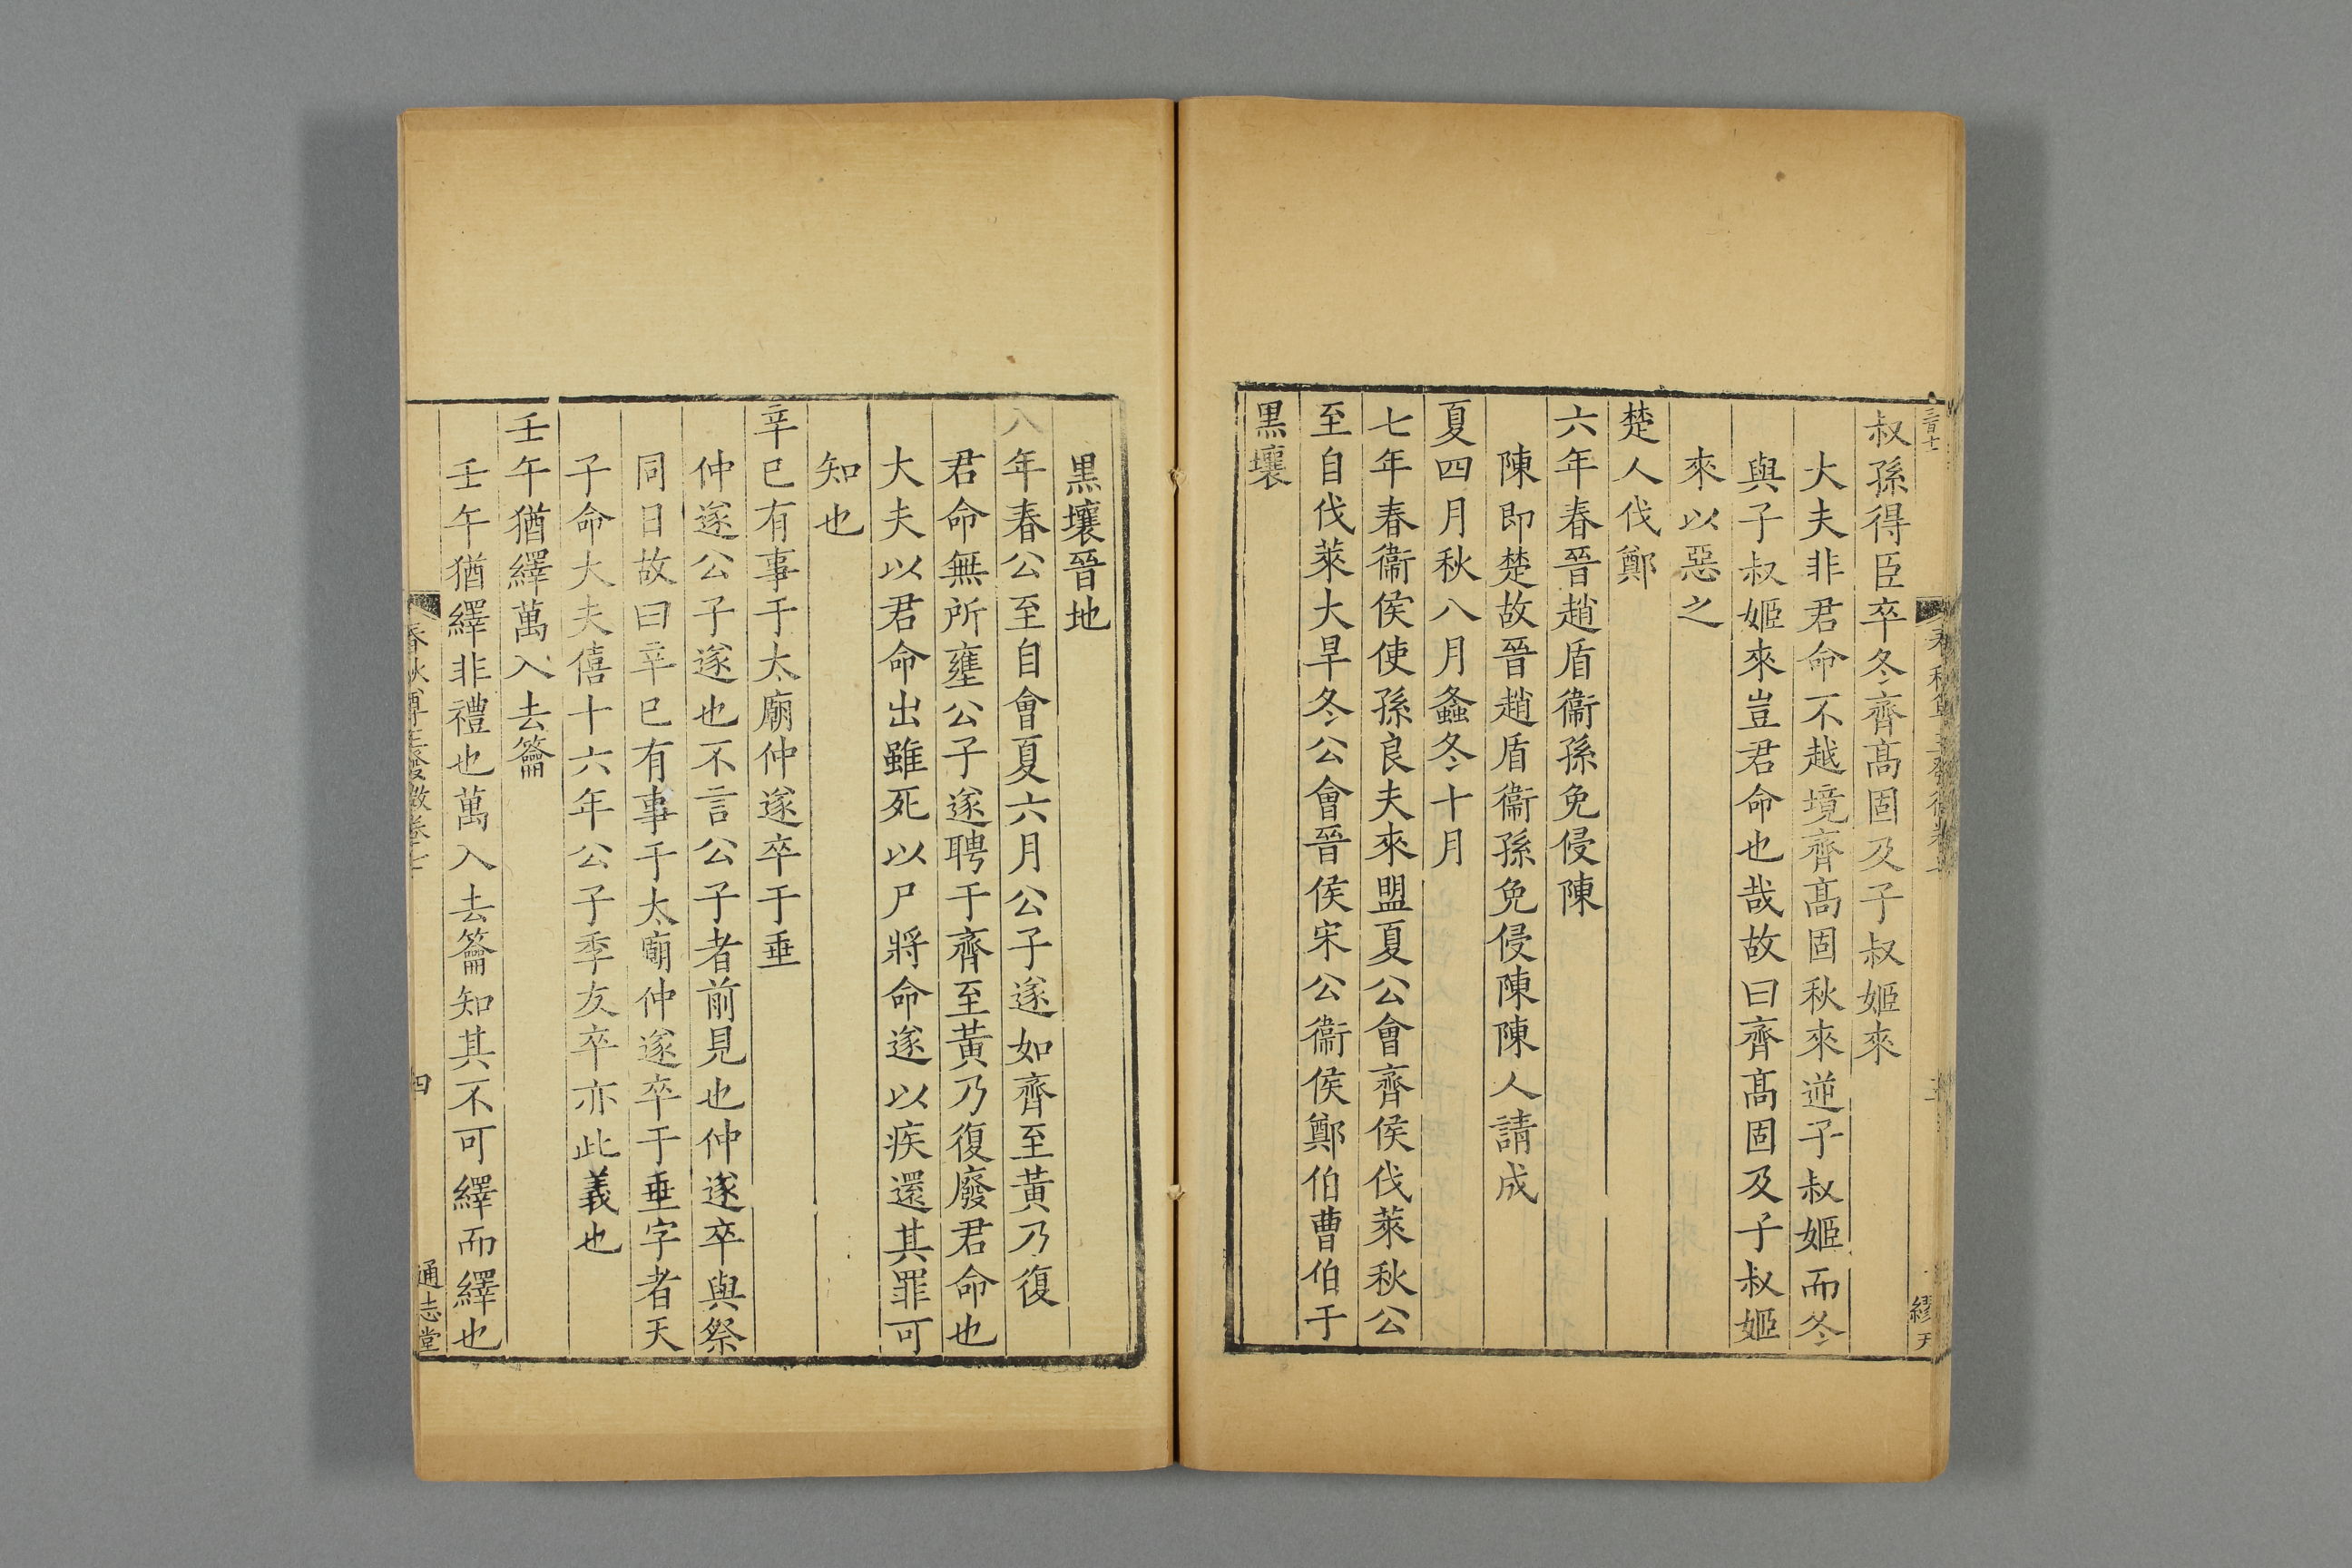 叔孫得臣卒冬齊髙固及子叔姬來
大夫非君命不越境齊髙固秋來逆子叔姬而冬
與子叔姬來豈君命也哉故曰齊髙固及子叔姬
來以惡之
楚人伐鄭
六年春晉趙盾衞孫免侵陳
陳即楚故晉趙盾衞孫免侵陳陳人請成
夏四月秋八月螽冬十月
七年春衞侯使孫良夫來盟夏公會齊侯伐萊秋公
至自伐萊大旱冬公會晉侯宋公衞侯鄭伯曹伯于
黒壤
黒壤晉地
八年春公至自會夏六月公子遂如齊至黃乃復
君命無所壅公子遂聘于齊至黃乃復廢君命也
大夫以君命出雖死以尸將命遂以疾還其罪可
知也
辛巳有事于太廟仲遂卒于垂
仲遂公子遂也不言公子者前見也仲遂卒與祭
同日故曰辛巳有事于太廟仲遂卒于垂字者天
子命大夫僖十六年公子季友卒亦此義也
壬午猶繹萬入去籥
壬午猶繹非禮也萬入去籥知其不可繹而繹也
春秋尊王發微卷七
四
通志堂